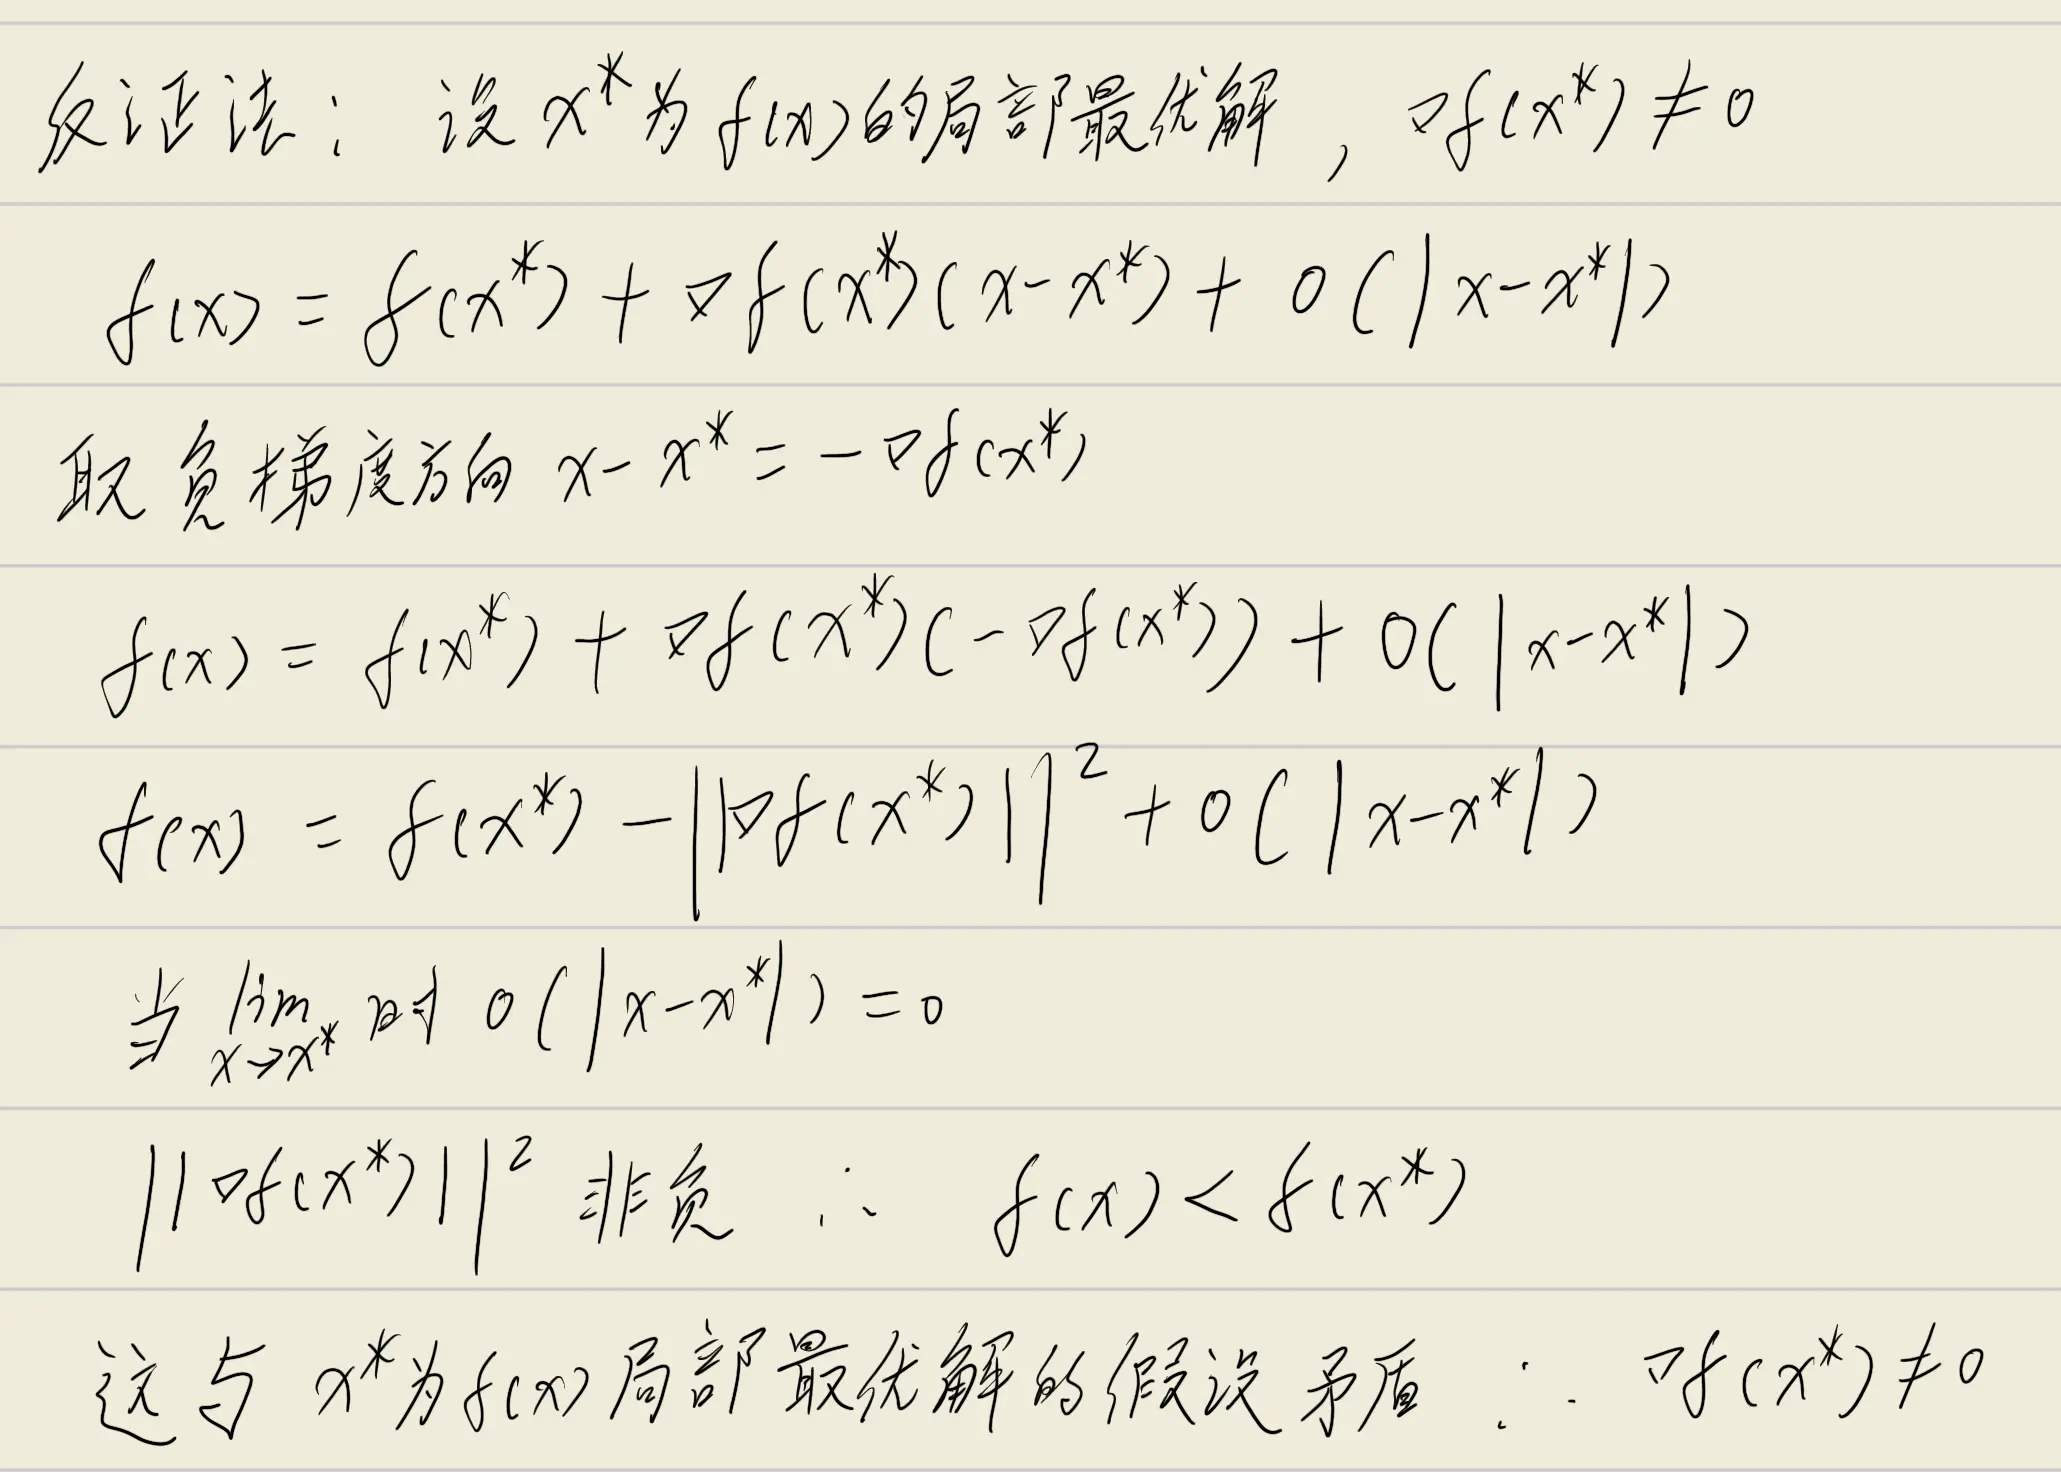 反证法: 设 x* 为 f(x) 的局部最优解, ∇f(x*) ≠ 0
f(x) = f(x*) + ∇f(x*)(x-x*) + o(|x-x*|)
取负梯度方向 x-x* = -∇f(x*)
f(x) = f(x*) + ∇f(x*)(-∇f(x*)) + o(|x-x*|)
f(x) = f(x*) - ||∇f(x*)||² + o(|x-x*|)
当 lim x→x* 时 o(|x-x*|) = 0
||∇f(x*)||² 非负 ∴ f(x) < f(x*)
这与 x* 为 f(x) 局部最优解的假设矛盾 ∴ ∇f(x*) ≠ 0